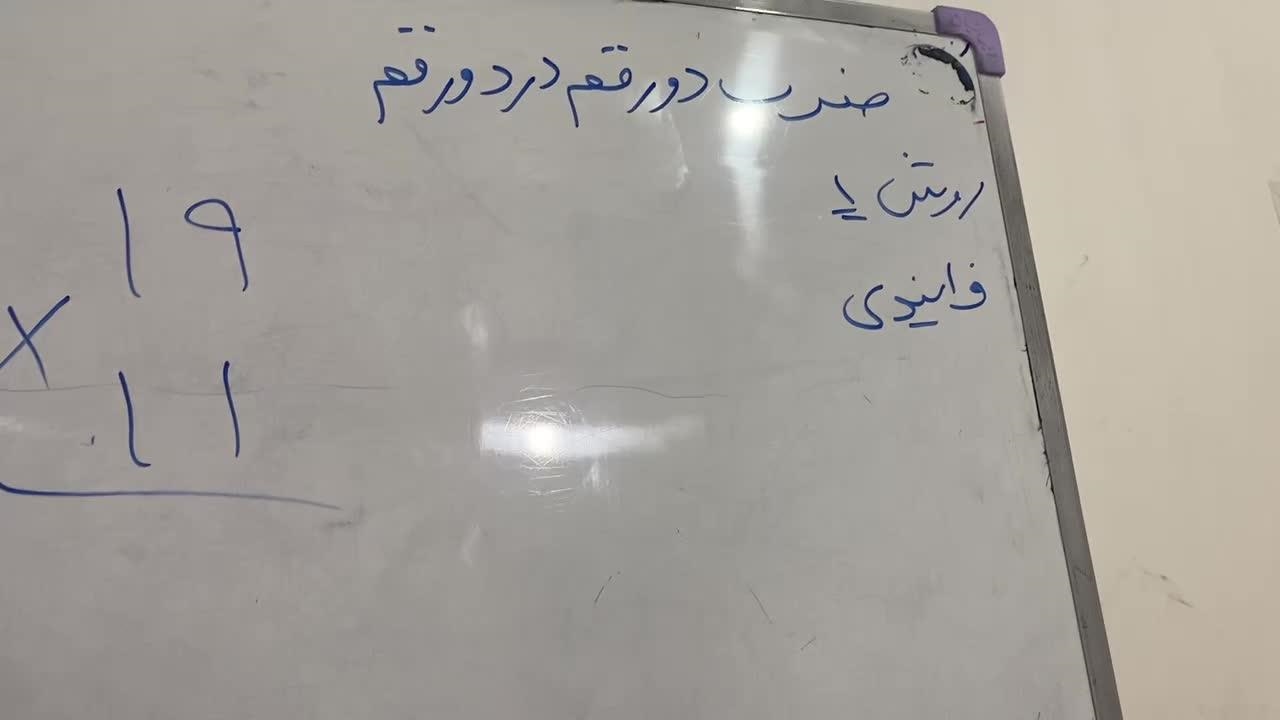 ضرب دو رقم در دو رقم
روش ۱
فرایندی
۱۹
×
۱۱